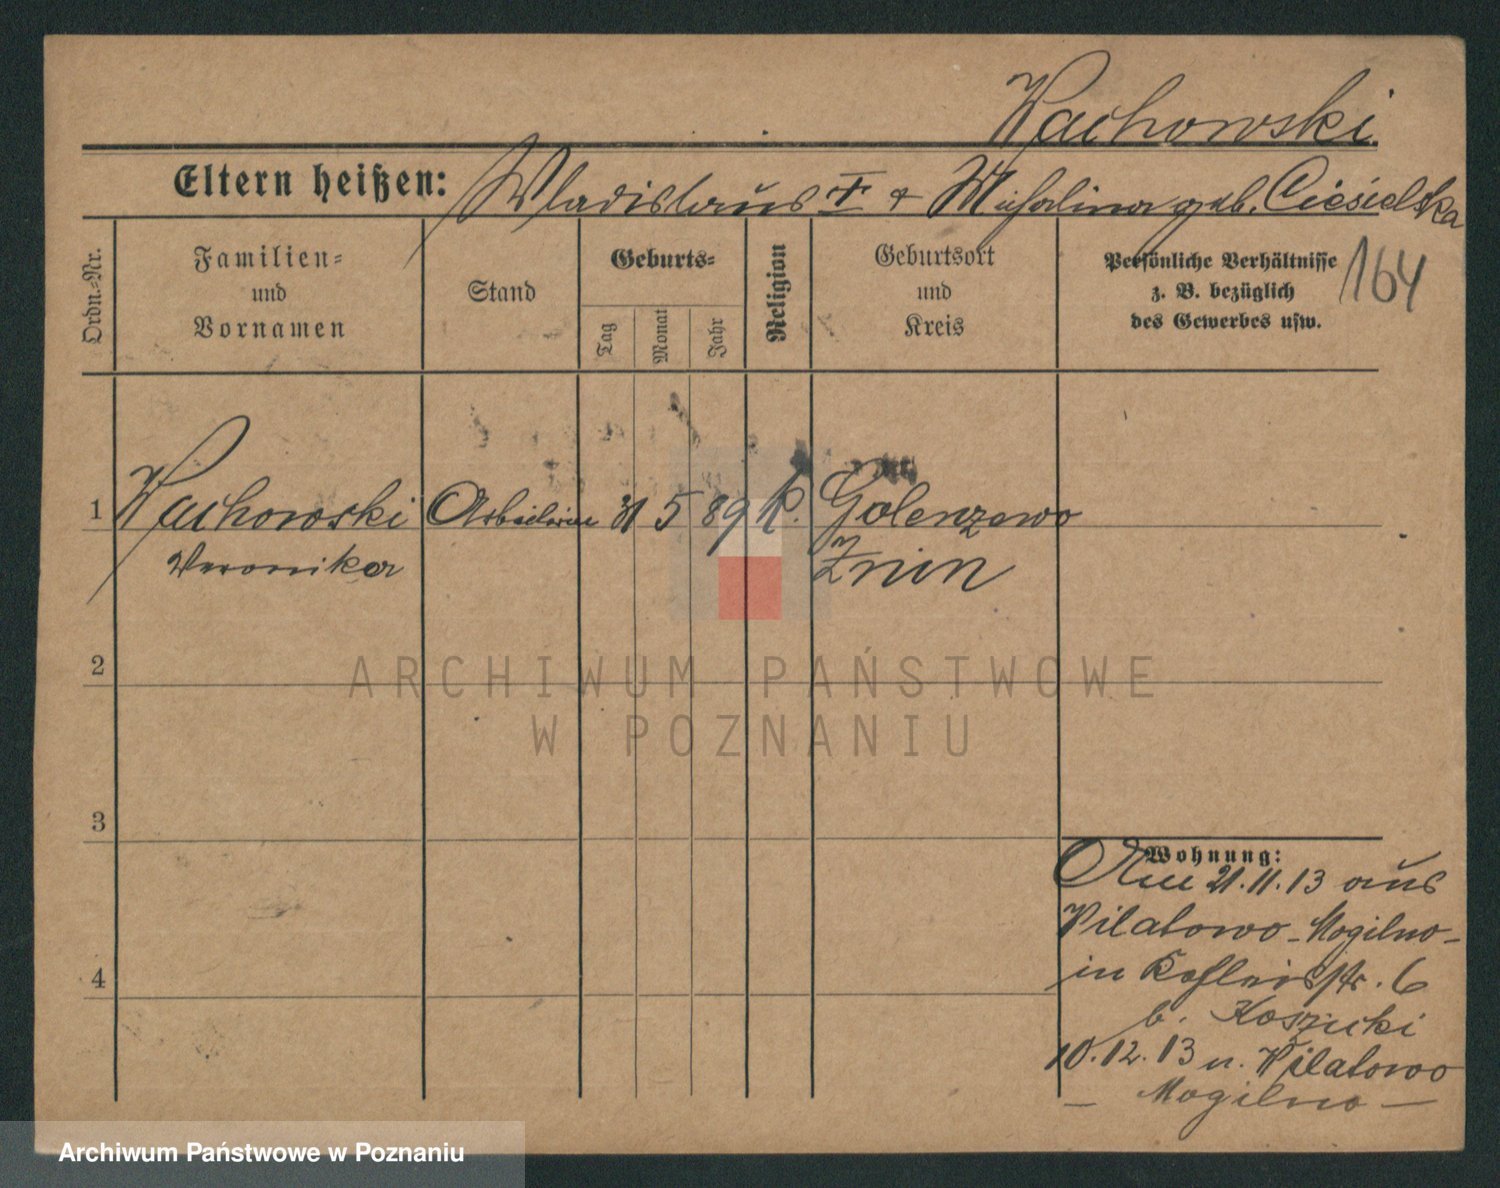 Wachowski.
Eltern heißen: Wladislaus † + Michalina geb. Ciesielska
Ordn.-Nr.
Familien-
und
Vornamen
Stand
Geburts-
Tag
Monat
Jahr
Religion
Geburtsort
und
Kreis
Persönliche Verhältnisse
z. B. bezüglich
des Gewerbes usw.
164
1 Wachowski Arbeiterin 31 5 89 k. Golenzewo
Veronika Znin
2
3
4
Wohnung:
Am 21.11.13 aus
Wilatowo - Mogilno -
in 6
b. Koszucki
10.12.13 n. Wilatowo
- Mogilno -
ARCHIWUM PAŃSTWOWE
W POZNANIU
Archiwum Państwowe w Poznaniu